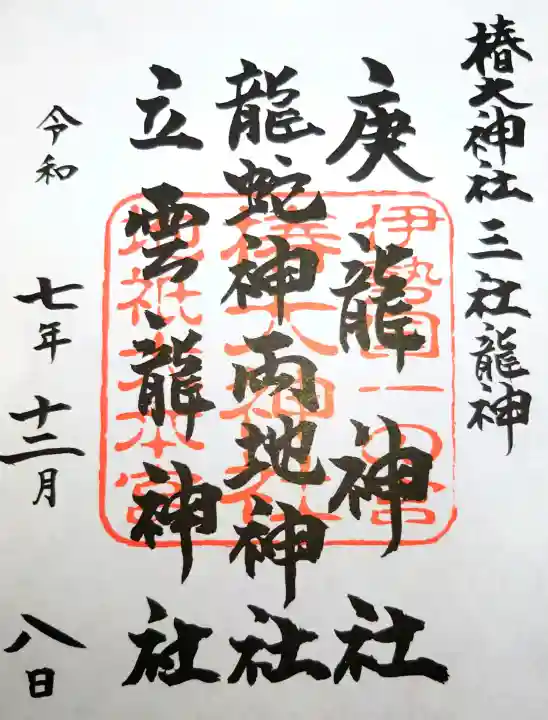 椿大神社三社龍神
庚龍神社
龍蛇神両地神社
立雲龍神社
令和七年十二月八日
伊勢国一の宮
椿大神社
地祇大本宮